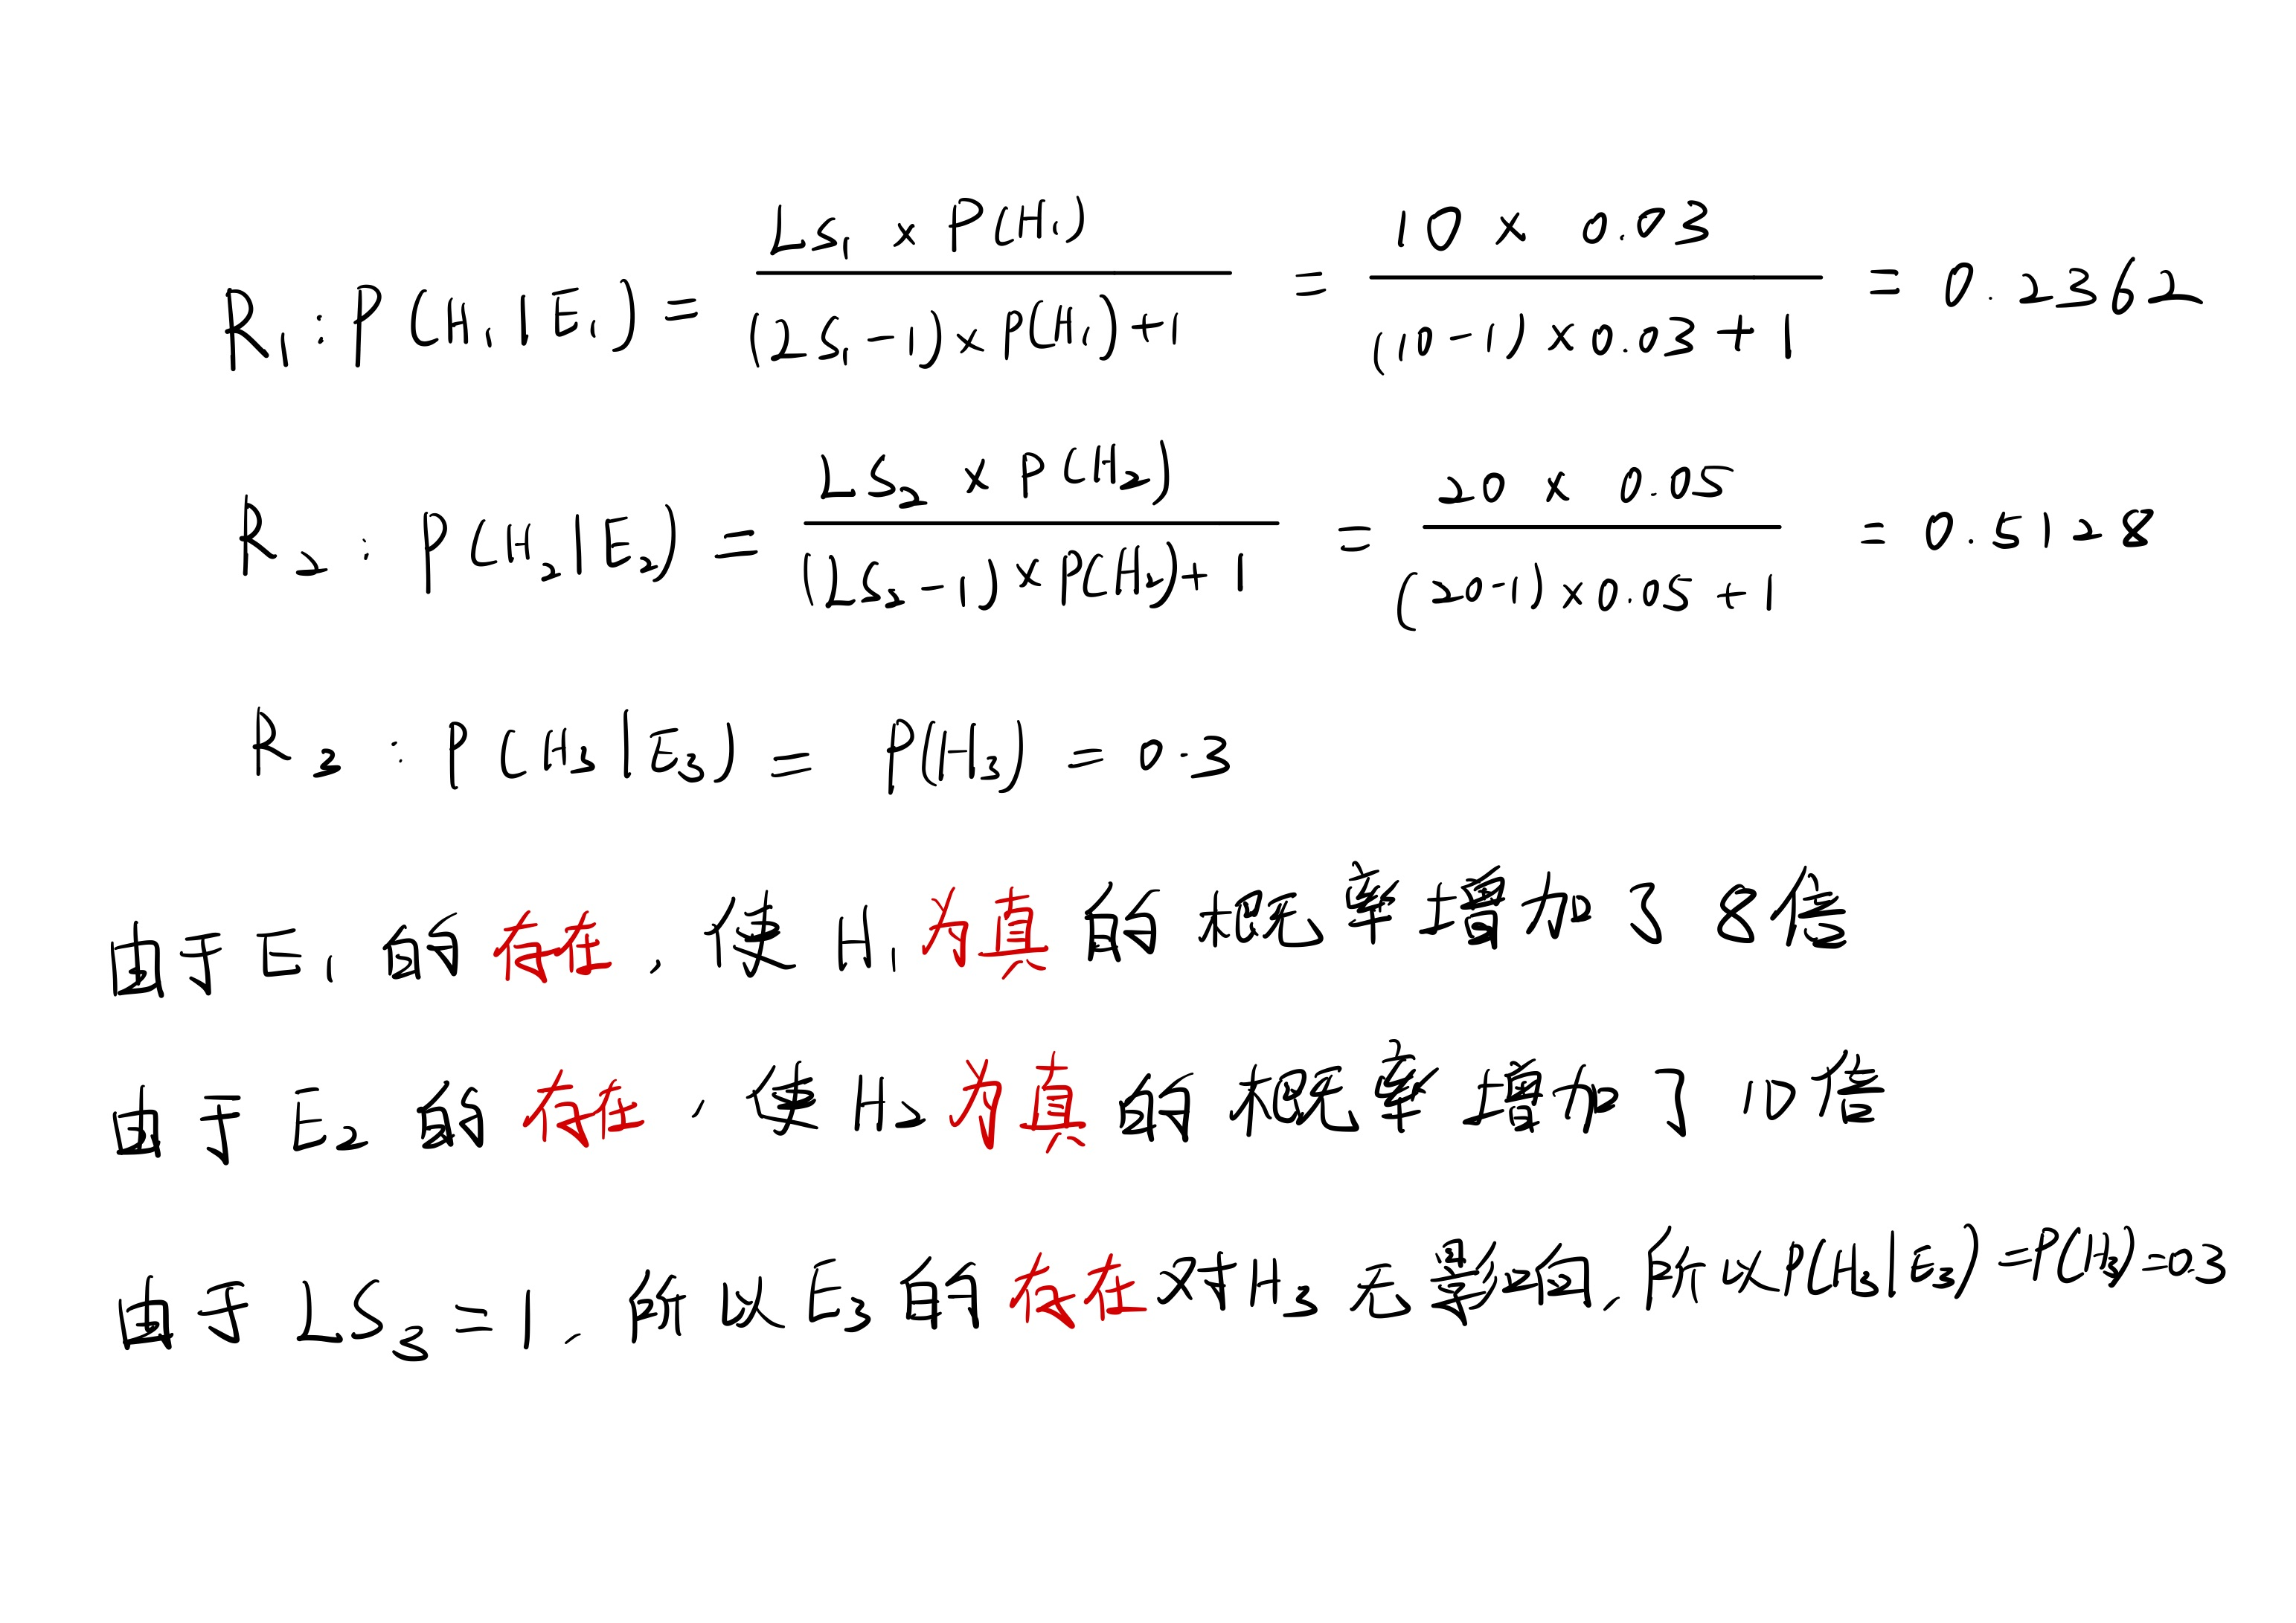 R₁: P(H₁|E₁) = LS₁ × P(H₁) / (LS₁ - 1) × P(H₁) + 1 = 10 × 0.03 / (10 - 1) × 0.03 + 1 = 0.2362
R₂: P(H₂|E₂) = LS₂ × P(H₂) / (LS₂ - 1) × P(H₂) + 1 = 20 × 0.05 / (20 - 1) × 0.05 + 1 = 0.5128
R₃: P(H₃|E₃) = P(H₃) = 0.3
由于E₁的存在,使H₁为真的概率增加了8倍
由于E₂的存在,使H₂为真的概率增加了10倍
由于LS₃=1,所以E₃的存在对H₃无影响,所以P(H₃|E₃)=P(H₃)=0.3